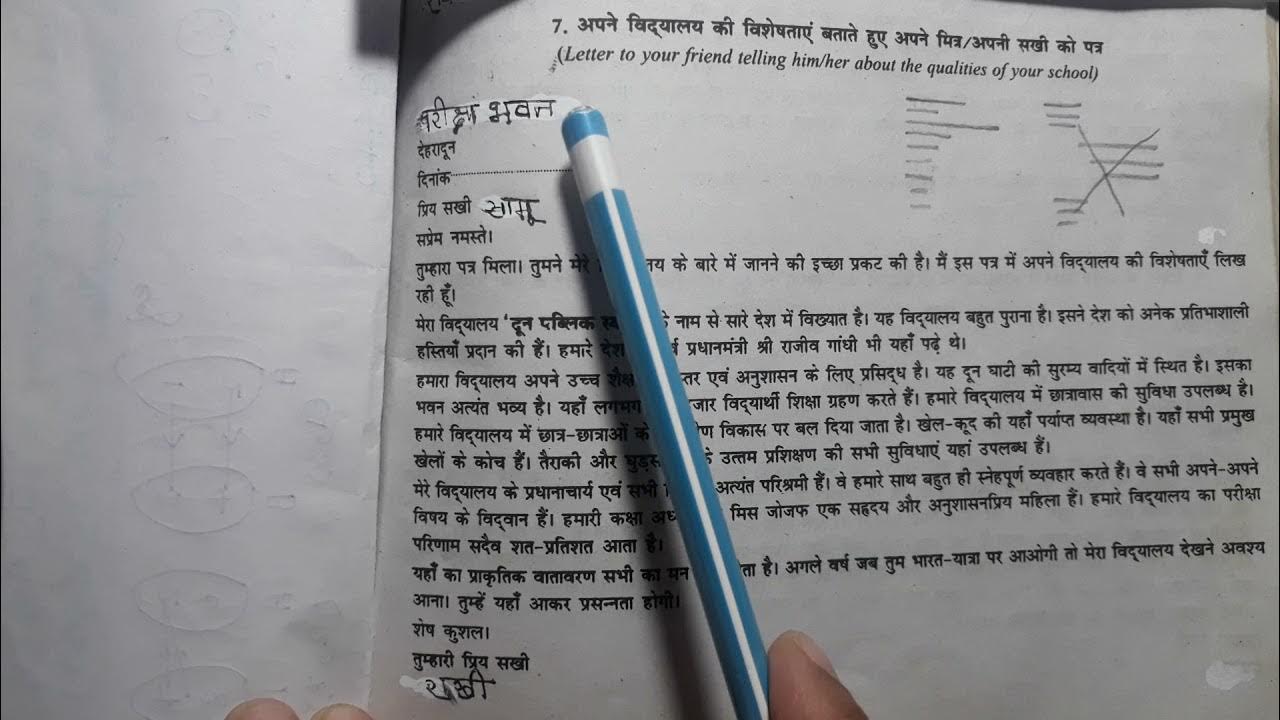 7. अपने विद्यालय की विशेषताएं बताते हुए अपने मित्र/अपनी सखी को पत्र
(Letter to your friend telling him/her about the qualities of your school)
परीक्षा भवन
देहरादून
दिनांक
प्रिय सखी सामू
सप्रेम नमस्ते।
तुम्हारा पत्र मिला। तुमने मेरे के बारे में जानने की इच्छा प्रकट की है। मैं इस पत्र में अपने विद्यालय की विशेषताएँ लिख
रही हूँ।
मेरा विद्यालय 'दून पब्लिक के नाम से सारे देश में विख्यात है। यह विद्यालय बहुत पुराना है। इसने देश को अनेक प्रतिभाशाली
हस्तियाँ प्रदान की हैं। हमारे देश प्रधानमंत्री श्री राजीव गांधी भी यहाँ पढ़े थे।
हमारा विद्यालय अपने उच्च एवं अनुशासन के लिए प्रसिद्ध है। यह दून घाटी की सुरम्य वादियों में स्थित है। इसका
भवन अत्यंत भव्य है। यहाँ लगभग विद्यार्थी शिक्षा ग्रहण करते हैं। हमारे विद्यालय में छात्रावास की सुविधा उपलब्ध है।
हमारे विद्यालय में छात्र-छात्राओं के विकास पर बल दिया जाता है। खेल-कूद की यहाँ पर्याप्त व्यवस्था है। यहाँ सभी प्रमुख
खेलों के कोच हैं। तैराकी और के उत्तम प्रशिक्षण की सभी सुविधाएं यहां उपलब्ध हैं।
मेरे विद्यालय के प्रधानाचार्य एवं सभी अत्यंत परिश्रमी हैं। वे हमारे साथ बहुत ही स्नेहपूर्ण व्यवहार करते हैं। वे सभी अपने-अपने
विषय के विद्वान हैं। हमारी कक्षा मिस जोजफ एक सहृदय और अनुशासनप्रिय महिला हैं। हमारे विद्यालय का परीक्षा
परिणाम सदैव शत-प्रतिशत आता है।
यहाँ का प्राकृतिक वातावरण सभी का मन है। अगले वर्ष जब तुम भारत-यात्रा पर आओगी तो मेरा विद्यालय देखने अवश्य
आना। तुम्हें यहाँ आकर प्रसन्नता होगी।
शेष कुशल।
तुम्हारी प्रिय सखी
राखी